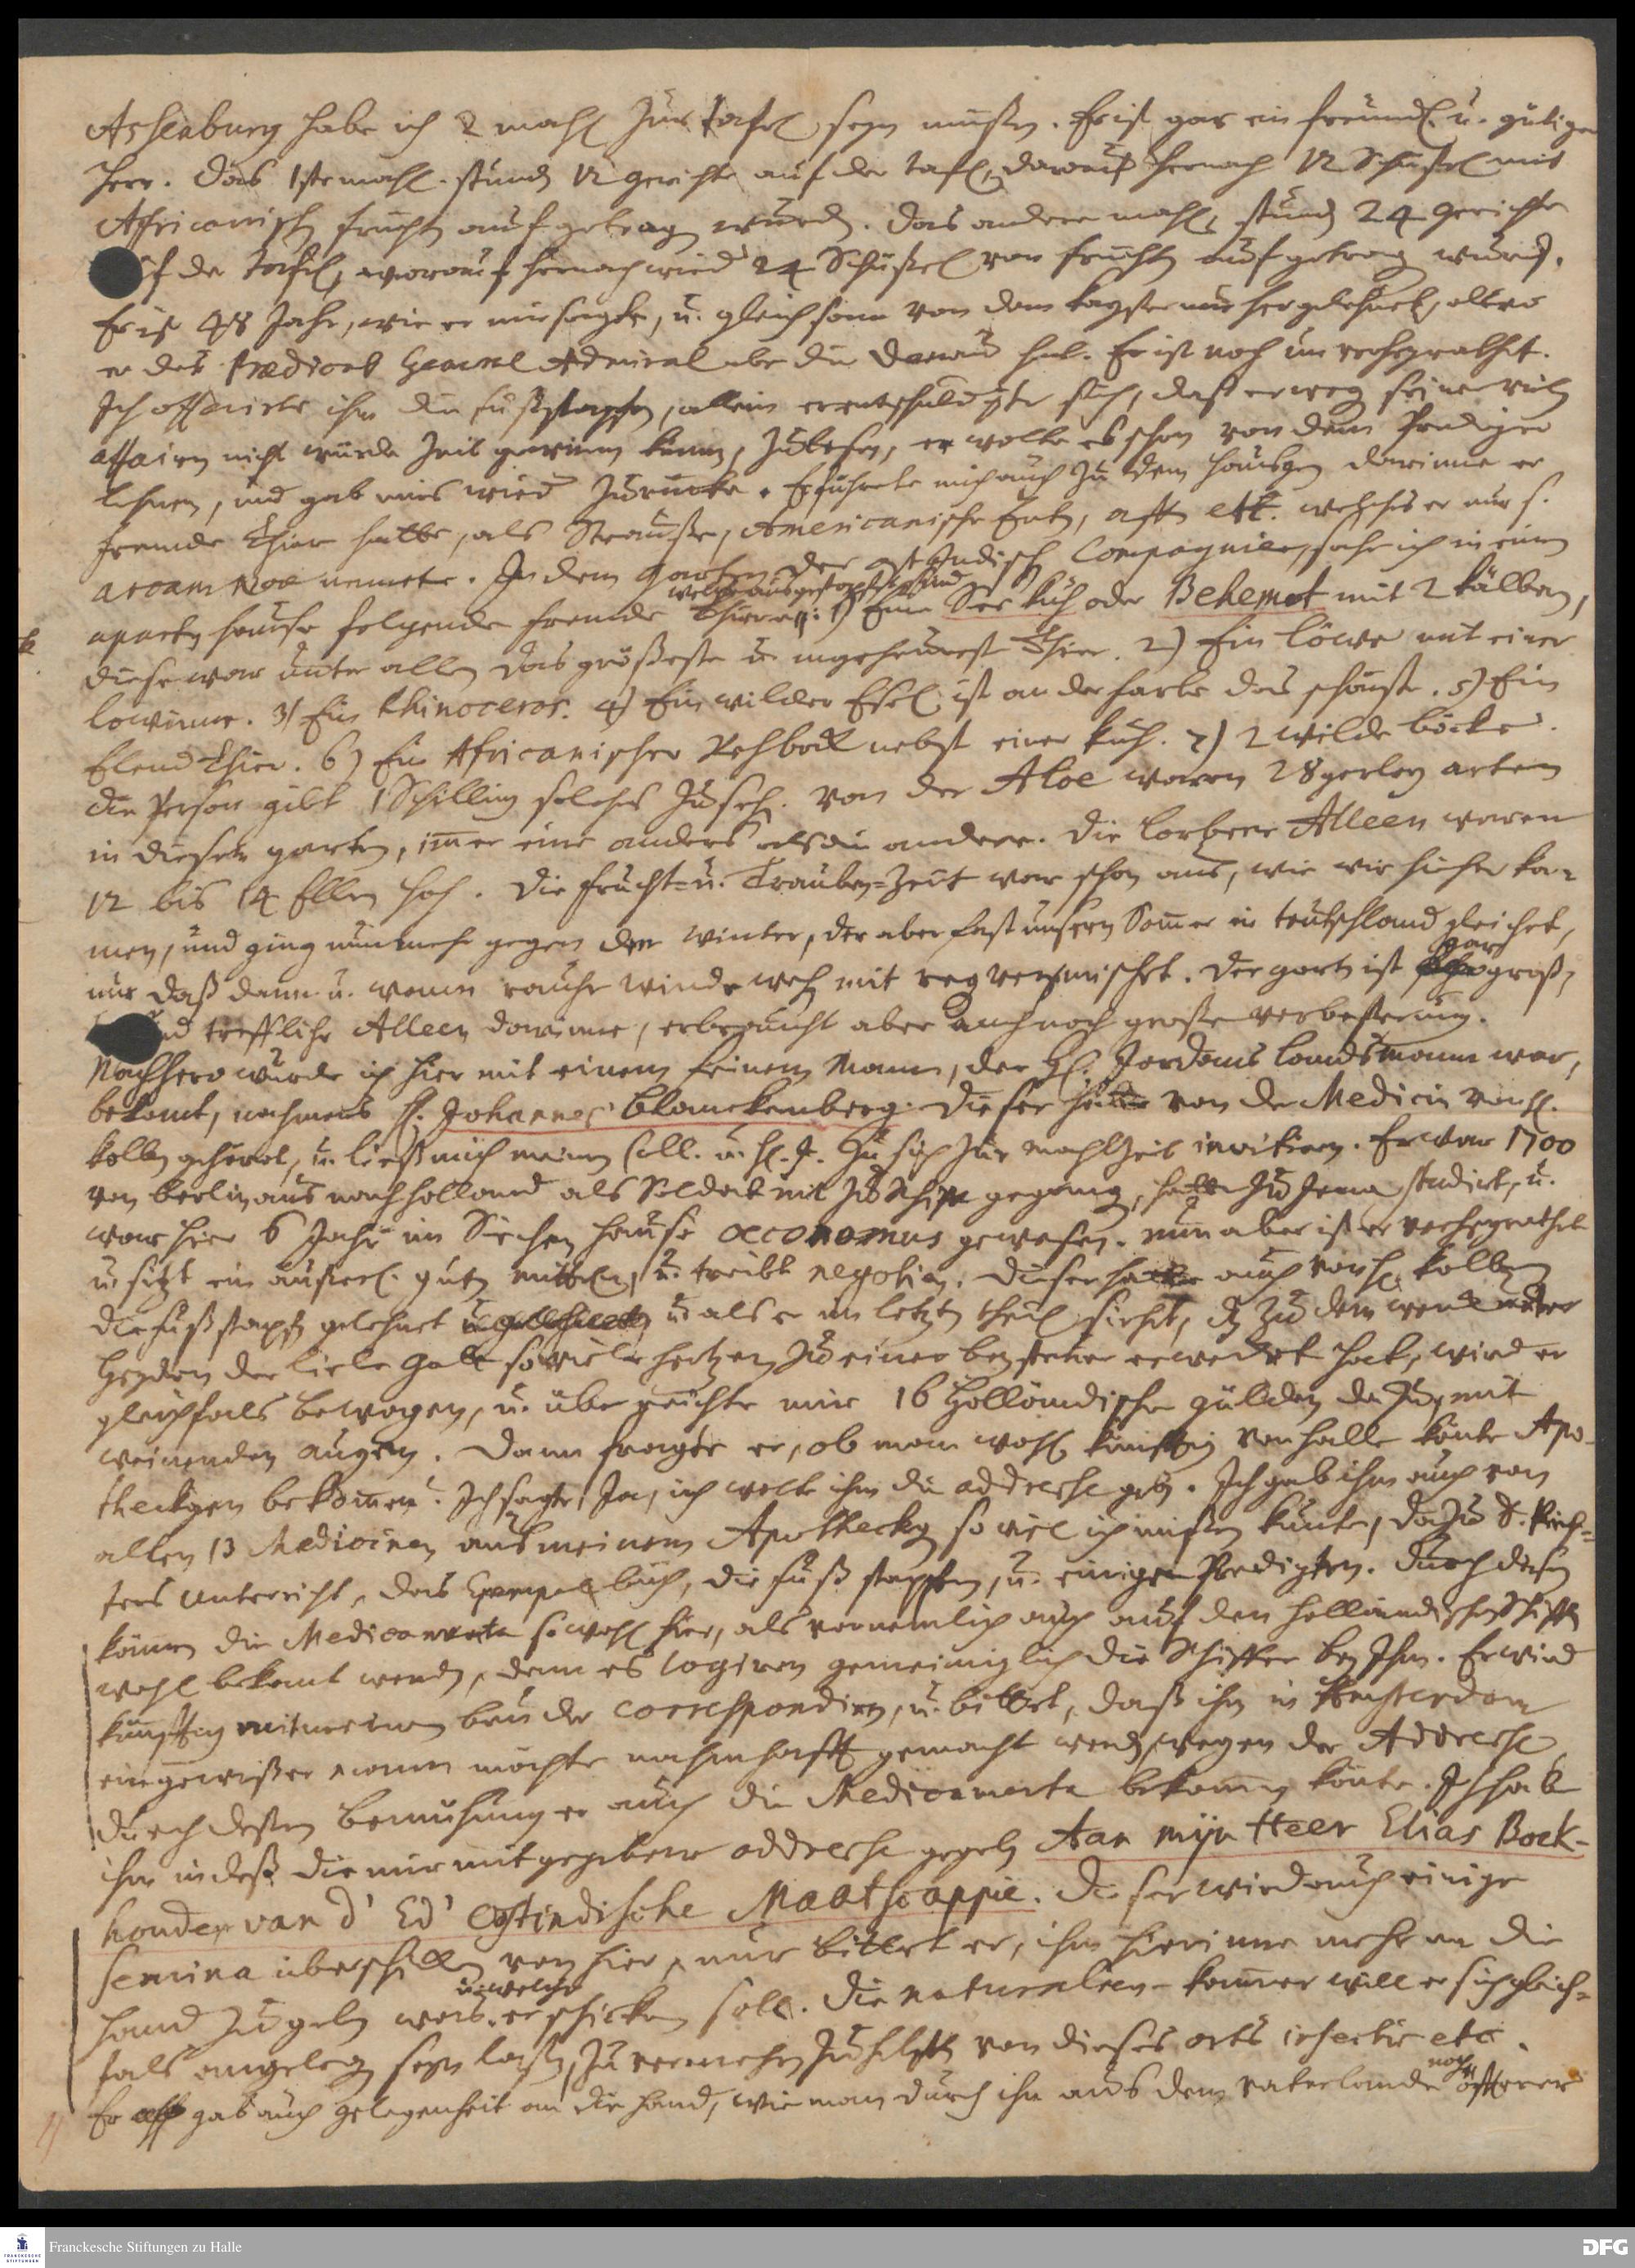 Assenburg habe ich 2 mahl zur tafel seyn müssen. Er ist gar ein freundl. u. gütiger
Herr. Das 1ste mahl stund 12 gerichte auf der tafel, darauf hernach 12 Schüssel mit
Africanisch früchten aufgetragen wurden. Das andere mahl, stund 24 gerichte
auf der tafel, worauf hernach wied 24 Schüssel von früchten aufgetragen wurd.
Er ist 48 Jahr, wie er mir sagte, u. gleichsam von dem
er das Admiral über die hat. Er ist noch unverheyrathet.
Ich offerirte ihm die fußstapfen, allein er entschuldigte sich, daß er weg seiner vielen
affairen nicht würde Zeit gewinnen können, zu lesen, er wolte es schon von dem Prediger
lehnen, und gab mirs wied zurücke. Er führete mich auch zu dem häusgen darinne er
fremde Thier hatte, als Strauße, Americanische Enten, affen etc. welches er nur s.
arcam Noae nennete. In dem garten der ostIndisch Compagnie, sahe ich in einem
aparten hause folgende fremde Thiere welche ausgestopfft sind: 1) Eine See Kuh oder Behemot mit 2 Kälbern,
diese war unter allen das größeste u. ungeheurest Thier. 2) Ein Löwe mit einer
Löwinne. 3) Ein Rhinoceros. 4) Ein wilder Esel, ist an der farbe das schönste. 5) Ein
Elend Thier. 6) Ein Africanischer Rehbock nebst einer Kuh. 7) 2 wilde böcke.
die Person gibt 1 Schilling solches zu sehen. Von der Aloe waren 28gerley arten
in diesem garten, immer eine anders als die andere. Die Lorbeer Alleen waren
12 bis 14 Ellen hoch. Die frucht- u. Trauben-Zeit war schon aus, wie wir hieher ka-
men, und ging nunmehr gegen den winter, der aber fast unsern Sommer in teutschland gleichet,
nur daß dann u. wann rauhe winde wehen mit regen vermischet. Der garten ist gar groß,
und treffliche Alleen darinne, erbraucht aber auch noch große verbesserung.
Nachhero wurde ich hier mit einem feinen Mann, der H. Jordans Landsmann war,
bekant, nahmens H. Johannes Blanckenberg. Dieser hatte von der Medicin von H.
Kolben gehöret, u. ließ mich meinen Coll. u. H. J. zu sich zur mahlzeit invitiren. Er war 1700
von Berlin aus nach Holland als Soldat mit zu Schiffe gegangen, hatte zu Jena studirt, u.
war hier 6 Jahr im Siechen hause oeconomus gewesen. nun aber ist er verheyrathet
u. sitzt in äuserl. guten mitteln, u. treibt negotien. Dieser hatte auch von H. Kolben
die fußstapfen gelehnet u. als er im letzten theil siehet, dz zu dem werck unter
Heyden der liebe Gott so viele hertzen zu einer beysteuer erwecket hat, wird er
gleichfals bewogen, u. überreichte mir 16 Holländische gülden dazu, mit
weinenden augen. Dann fragte er, ob man wohl künfftig von Halle könte Apo-
theckgen bekommen? Ich sagte, Ja, ich wolte ihm die addresse geben. Ich gab ihm auch von
allen 13 Medicinen aus meinem Apotheckgen so viel ich missen kunte, dazu D. Rich-
ters Unterricht, das Exempel buch, die fußstapfen, u. einige Predigten. Durch diesen
können die Medicamenta so wohl hier, als vornemlich auch auf den holländischen schiffen
wohl bekant werden, denn es logiren gemeiniglich die Schiffer bey Ihm. Er wird
künfftig mit meinem bruder correspondiren, u. bittet, daß ihm in Amsterdam
ein gewisser mann möchte nahmhafft gemacht werden, wegen der Addresse
durch dessen bemühung er auch die Medicamenta bekommen könte. Ich hab
ihm indeß die mir mitgegebene addresse gegeben Aan mijn Heer Elias Boek-
houder van d' Ed' Ostindische Maatscappie. Dieser wird auch einige
semina überschicken von hier, nur bittet er, ihm hierinne mehr an die
hand zu geben was u. welche er schicken soll. Die naturalien-kammer will er sich gleich-
fals angelegen seyn laßen, zu vermehren zu helffen von dieses orts insectis etc.
Er gab auch gelegenheit an die hand, wie man durch ihn aus dem vaterlande noch öffterer
Franckesche Stiftungen zu Halle
DFG